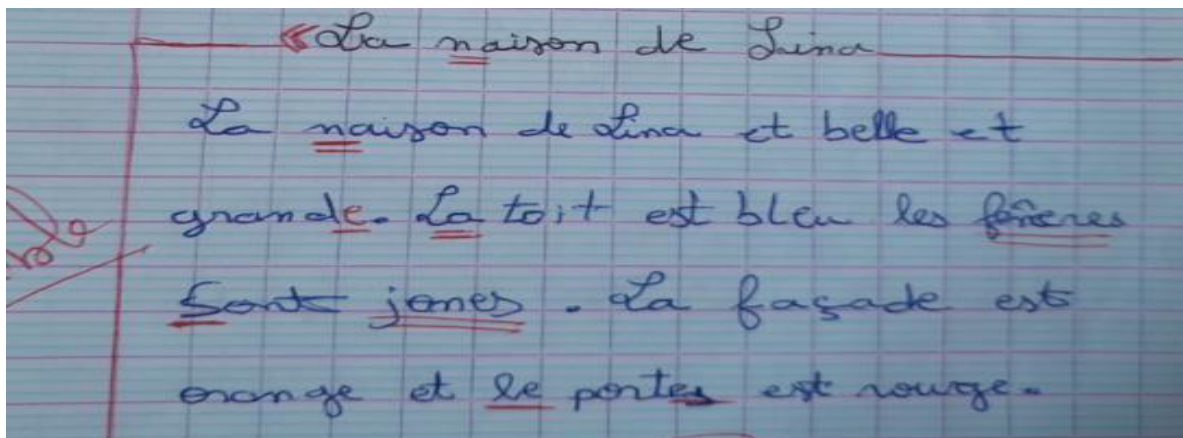 «La naison de Lina
La naison de Lina et belle et
grande. La toit est bleu les fenêres
Sont jones. La façade est
orange et le portes est rouge.